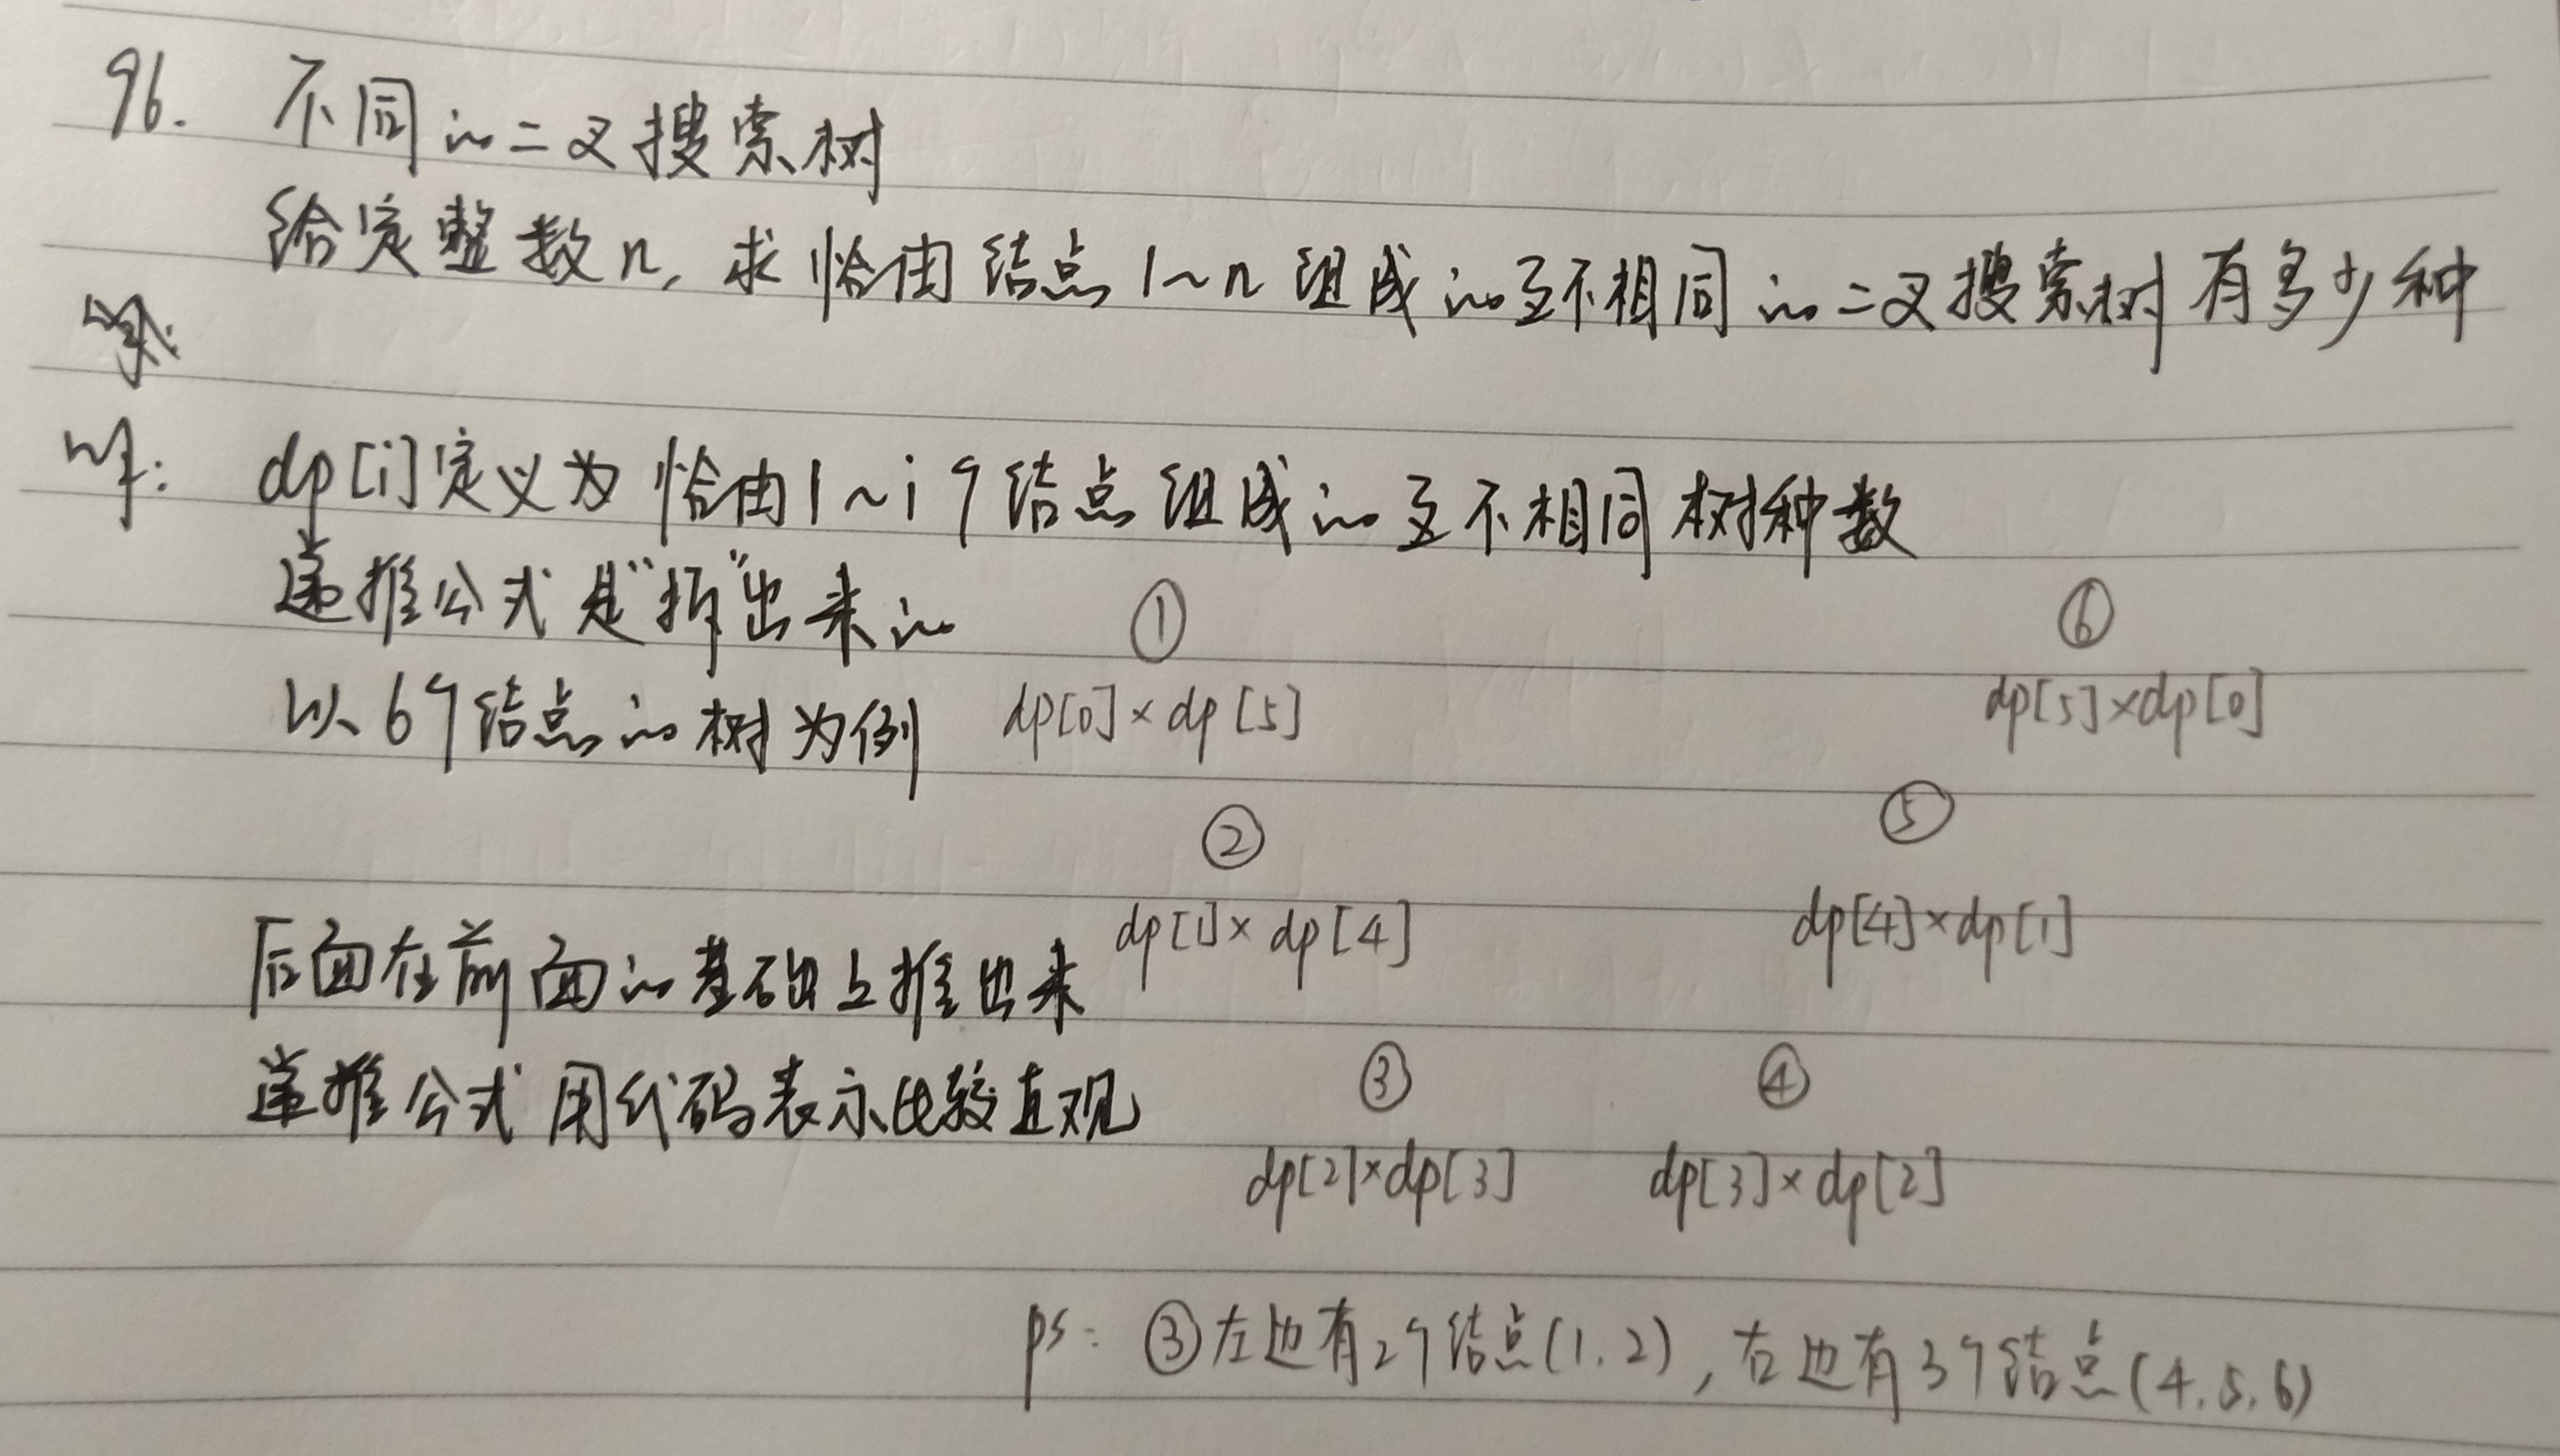 96. 不同的二叉搜索树
给定整数n, 求恰由结点1~n组成的互不相同的二叉搜索树有多少种
dp[i]定义为恰由1~i个结点组成的互不相同树种数
递推公式是"拆"出来的
① ⑥
以6个结点的树为例 dp[0]×dp[5] dp[5]×dp[0]
② ⑤
dp[1]×dp[4] dp[4]×dp[1]
后面在前面的基础上推出来
③ ④
递推公式用代码表示比较直观
dp[2]×dp[3] dp[3]×dp[2]
ps: ③左边有2个结点(1.2), 右边有3个结点(4.5.6)